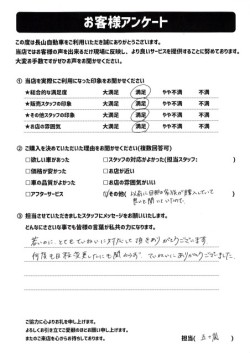 お客様アンケート
この度は長山自動車をご利用いただき誠にありがとうございます。
当店ではお客様の声を出来るだけ現場に反映し、より良いサービスを提供することに努めております。
大変お手数ですがぜひお声をお聞かせください。
① 当店を実際にご利用になった印象をお聞かせください
★総合的な満足度 大満足 満足 やや不満 不満
★販売スタッフの印象 大満足 満足 やや不満 不満
★その他スタッフの印象 大満足 満足 やや不満 不満
★お店の雰囲気 大満足 満足 やや不満 不満
② ご購入を決めていただいた理由をお聞かせください(複数回答可)
□欲しい車があった □スタッフの対応がよかった(担当スタッフ: )
□価格が安かった □お店が近い
□車の品質がよかった □お店の雰囲気がいい
□アフターサービス □その他( 以前に旦那の家族が購入していて
③ 担当させていただきましたスタッフにメッセージをお願いいたします。
どんなにささいな事でも皆様の言葉が私共の力になります。
若いのに、とてもていねいに対応して頂きありがとうございます
何度も日程変更したにも関わらず ていねいにありがとうございました。
ご協力に心よりお礼を申し上げます。
よろしくお引き立てご愛顧のほどお願い申し上げます。
またのご来店を心からお待ちしております。
担当(